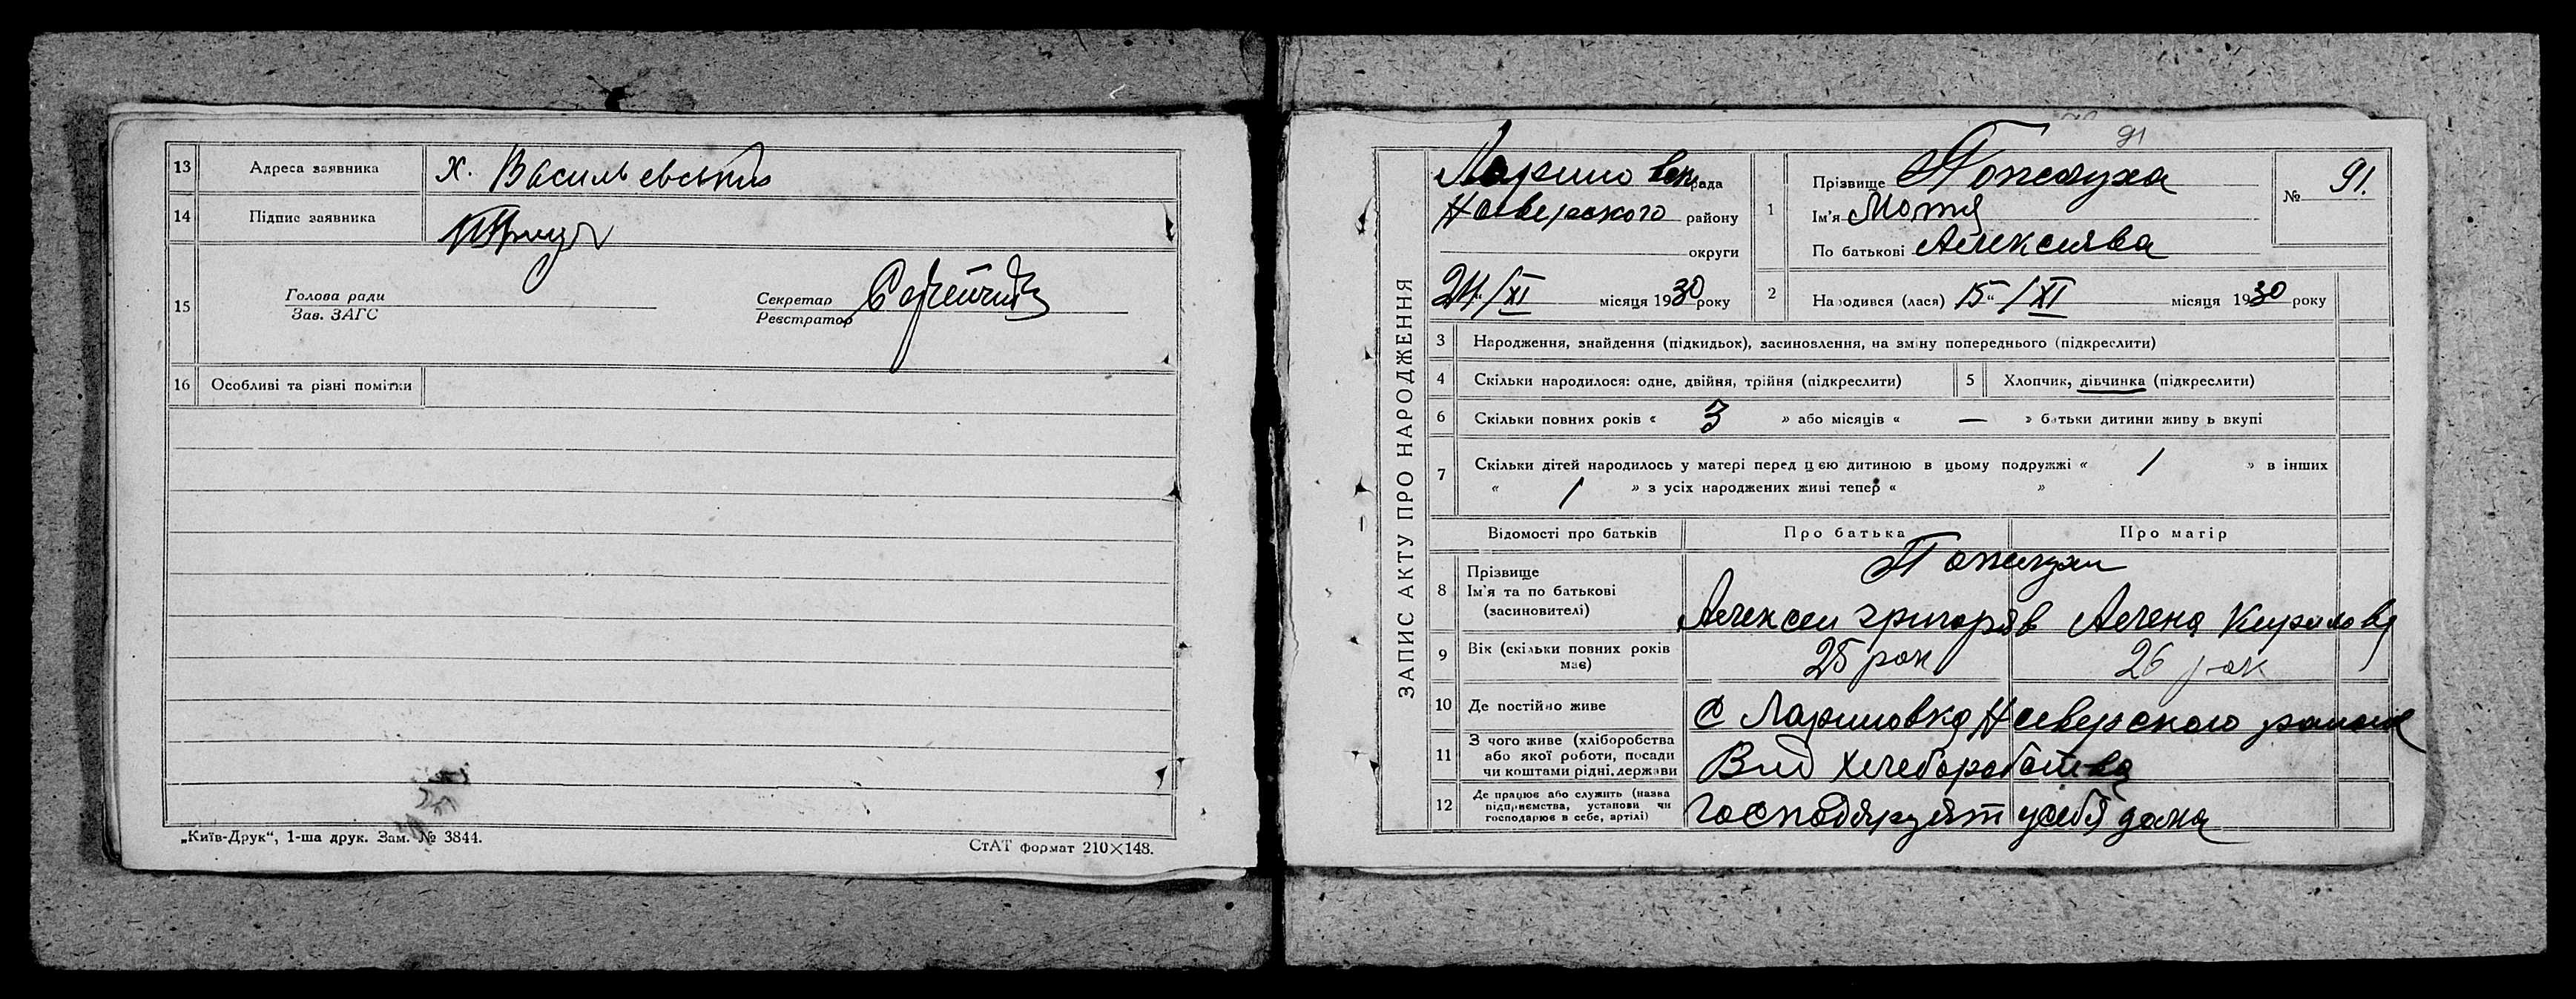 13 Адреса заявника х. Васильевський
14 Підпис заявника
15 Голова ради
Зав. ЗАГС
Секретар
Реєстратор
16 Особливі та різні помітки
„Київ-Друк“, 1-ша друк. Зам. № 3844.
СтАТ формат 210×148.
91
ЗАПИС АКТУ ПРО НАРОДЖЕННЯ
рада
Н Северского району
округи
24/XI місяця 1930 року
1 Прізвище
Ім'я Мотя
По батькові Алексиява
№ 91.
2 Народився (лася) 15/XI місяця 1930 року
3 Народження, знайдення (підкидьок), засиновлення, на зміну попереднього (підкреслити)
4 Скільки народилося: одне, двійня, трійня (підкреслити) 5 Хлопчик, дівчинка (підкреслити)
6 Скільки повних років « 3 » або місяців « — » батьки дитини живуть вкупі
7 Скільки дітей народилось у матері перед цією дитиною в цьому подружжі « 1 » в інших
« 1 » з усіх народжених живі тепер « »
Відомості про батьків Про батька Про матір
8 Прізвище
Ім'я та по батькові
(засиновителі)
Алексей григоряв Алена Кирилова
9 Вік (скільки повних років
має) 25 рок 26 рок
10 Де постійно живе С Лариновка Н северского района
11 З чого живе (хліборобства
або якої роботи, посади
чи коштами рідні, держави Вид хлебаработва
12 Де працює або служить (назва
підприємства, установи чи
господарює в себе, артілі) господяруят усебя дома